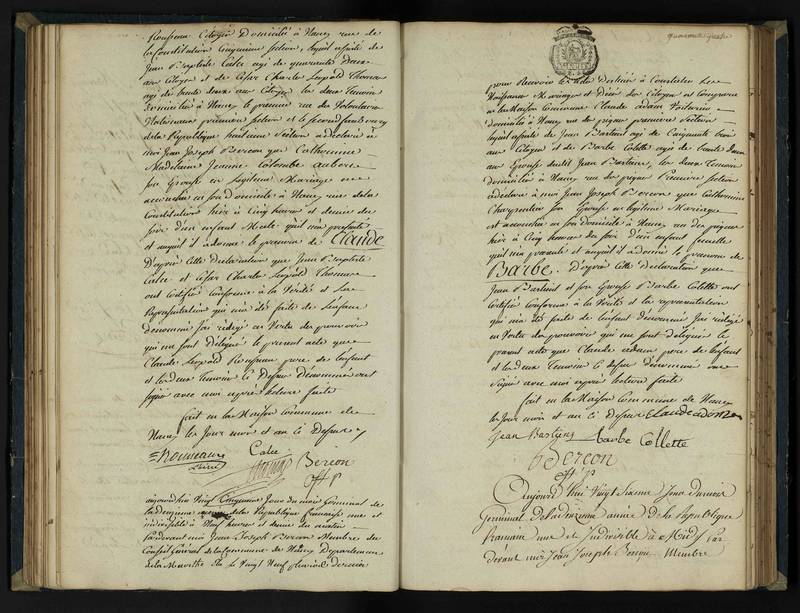 Rousseau Citoyen Domicilié à Nancy rue de
la Constitution Cinquieme section, lequel assisté de
Jean Baptiste Calce agé de quarante Deux
ans Citoyen et de César Charle Léopold Thomas
agé de trente deux ans Citoyen les deux Temoin
domiciliés à Nancy le premier rue des Volontaires
Nationaux premiere section et le second
de la Republique huitieme section a déclaré à
moi Jean Joseph Bercon que Catherinne
Madelaine Jeanne Colombe Aubert
son Epouse en Legitime Mariage est
accouchée en son domicile à Nancy rue de la
Constitution hier à Cinq heures et demie du
soir d'un enfant Male qu'il m'a presenté
et auquel il a donné le prenom de Claude
D'après Cette declaration que Jean Baptiste
Calce et César Charle Léopold Thomas
ont certifié Conforme à la Vérité et la
Representation qui m'a été faite de l'enfant
denommé j'ai redigé en Vertu des pouvoirs
qui me sont Délégués le present acte que
Claude Léopold Rousseau pere de l'enfant
et les deux Temoins Ci Dessus dénommés ont
signé avec moi après lecture faite
fait en la Maison Commune de
Nancy les Jour mois et an Ci Dessus
Rousseau Calce
Bercon
aujourd'hui Vingt Cinquieme Jour du mois Germinal de
la deuxieme année de la Republique française une et
indivisible à Neuf heures et demie du matin
pardevant moi Jean Joseph Bercon Membre du
Conseil Général de la Commune de Nancy Departement
de la Meurthe élu le Vingt Neuf pluviôse dernier
quarante quatre
pour Recevoir les actes Destinés à Constater les
Naissances Mariages et Décès des Citoyens est comparu
en la Maison Commune Claude Adam Voiturier
domicilié à Nancy rue du piquet premiere section
lequel assisté de Jean Bastien agé de Cinquante trois
ans Citoyen et de Barbe Colette agée de trente Deux
ans Epouse dudit Jean Bastien, les deux Temoins
domiciliés à Nancy rue du piquet Premiere section
a déclaré à moi Jean Joseph Bercon que Catherinne
Charpentier son Epouse en legitime Mariage
est accouchée en son domicile à Nancy rue du piquet
hier à Cinq heures du soir d'un enfant femelle
qu'il m'a presenté et auquel il a donné le prenom de
Barbe. d'après Cette déclaration que
Jean Bastien et son Epouse Barbe Colette ont
certifié conforme à la Vérité et la representation
qui m'a été faite de l'enfant dénommé J'ai redigé
en Vertu des pouvoirs qui me sont délégués le
present acte que Claude adam pere de l'enfant
et les deux Temoins Ci dessus dénommés ont
signé avec moi après lecture faite
fait en la Maison Commune de Nancy
les Jour mois et an Ci dessus Claude adam
Jean Bastien Barbe Collette
Bercon
Aujourd'hui Vingt Sixieme Jour du mois
Germinal de la deuxieme année de la Republique
francaise une et Indivisible à Midy par
devant moi Jean Joseph Bercon Membre